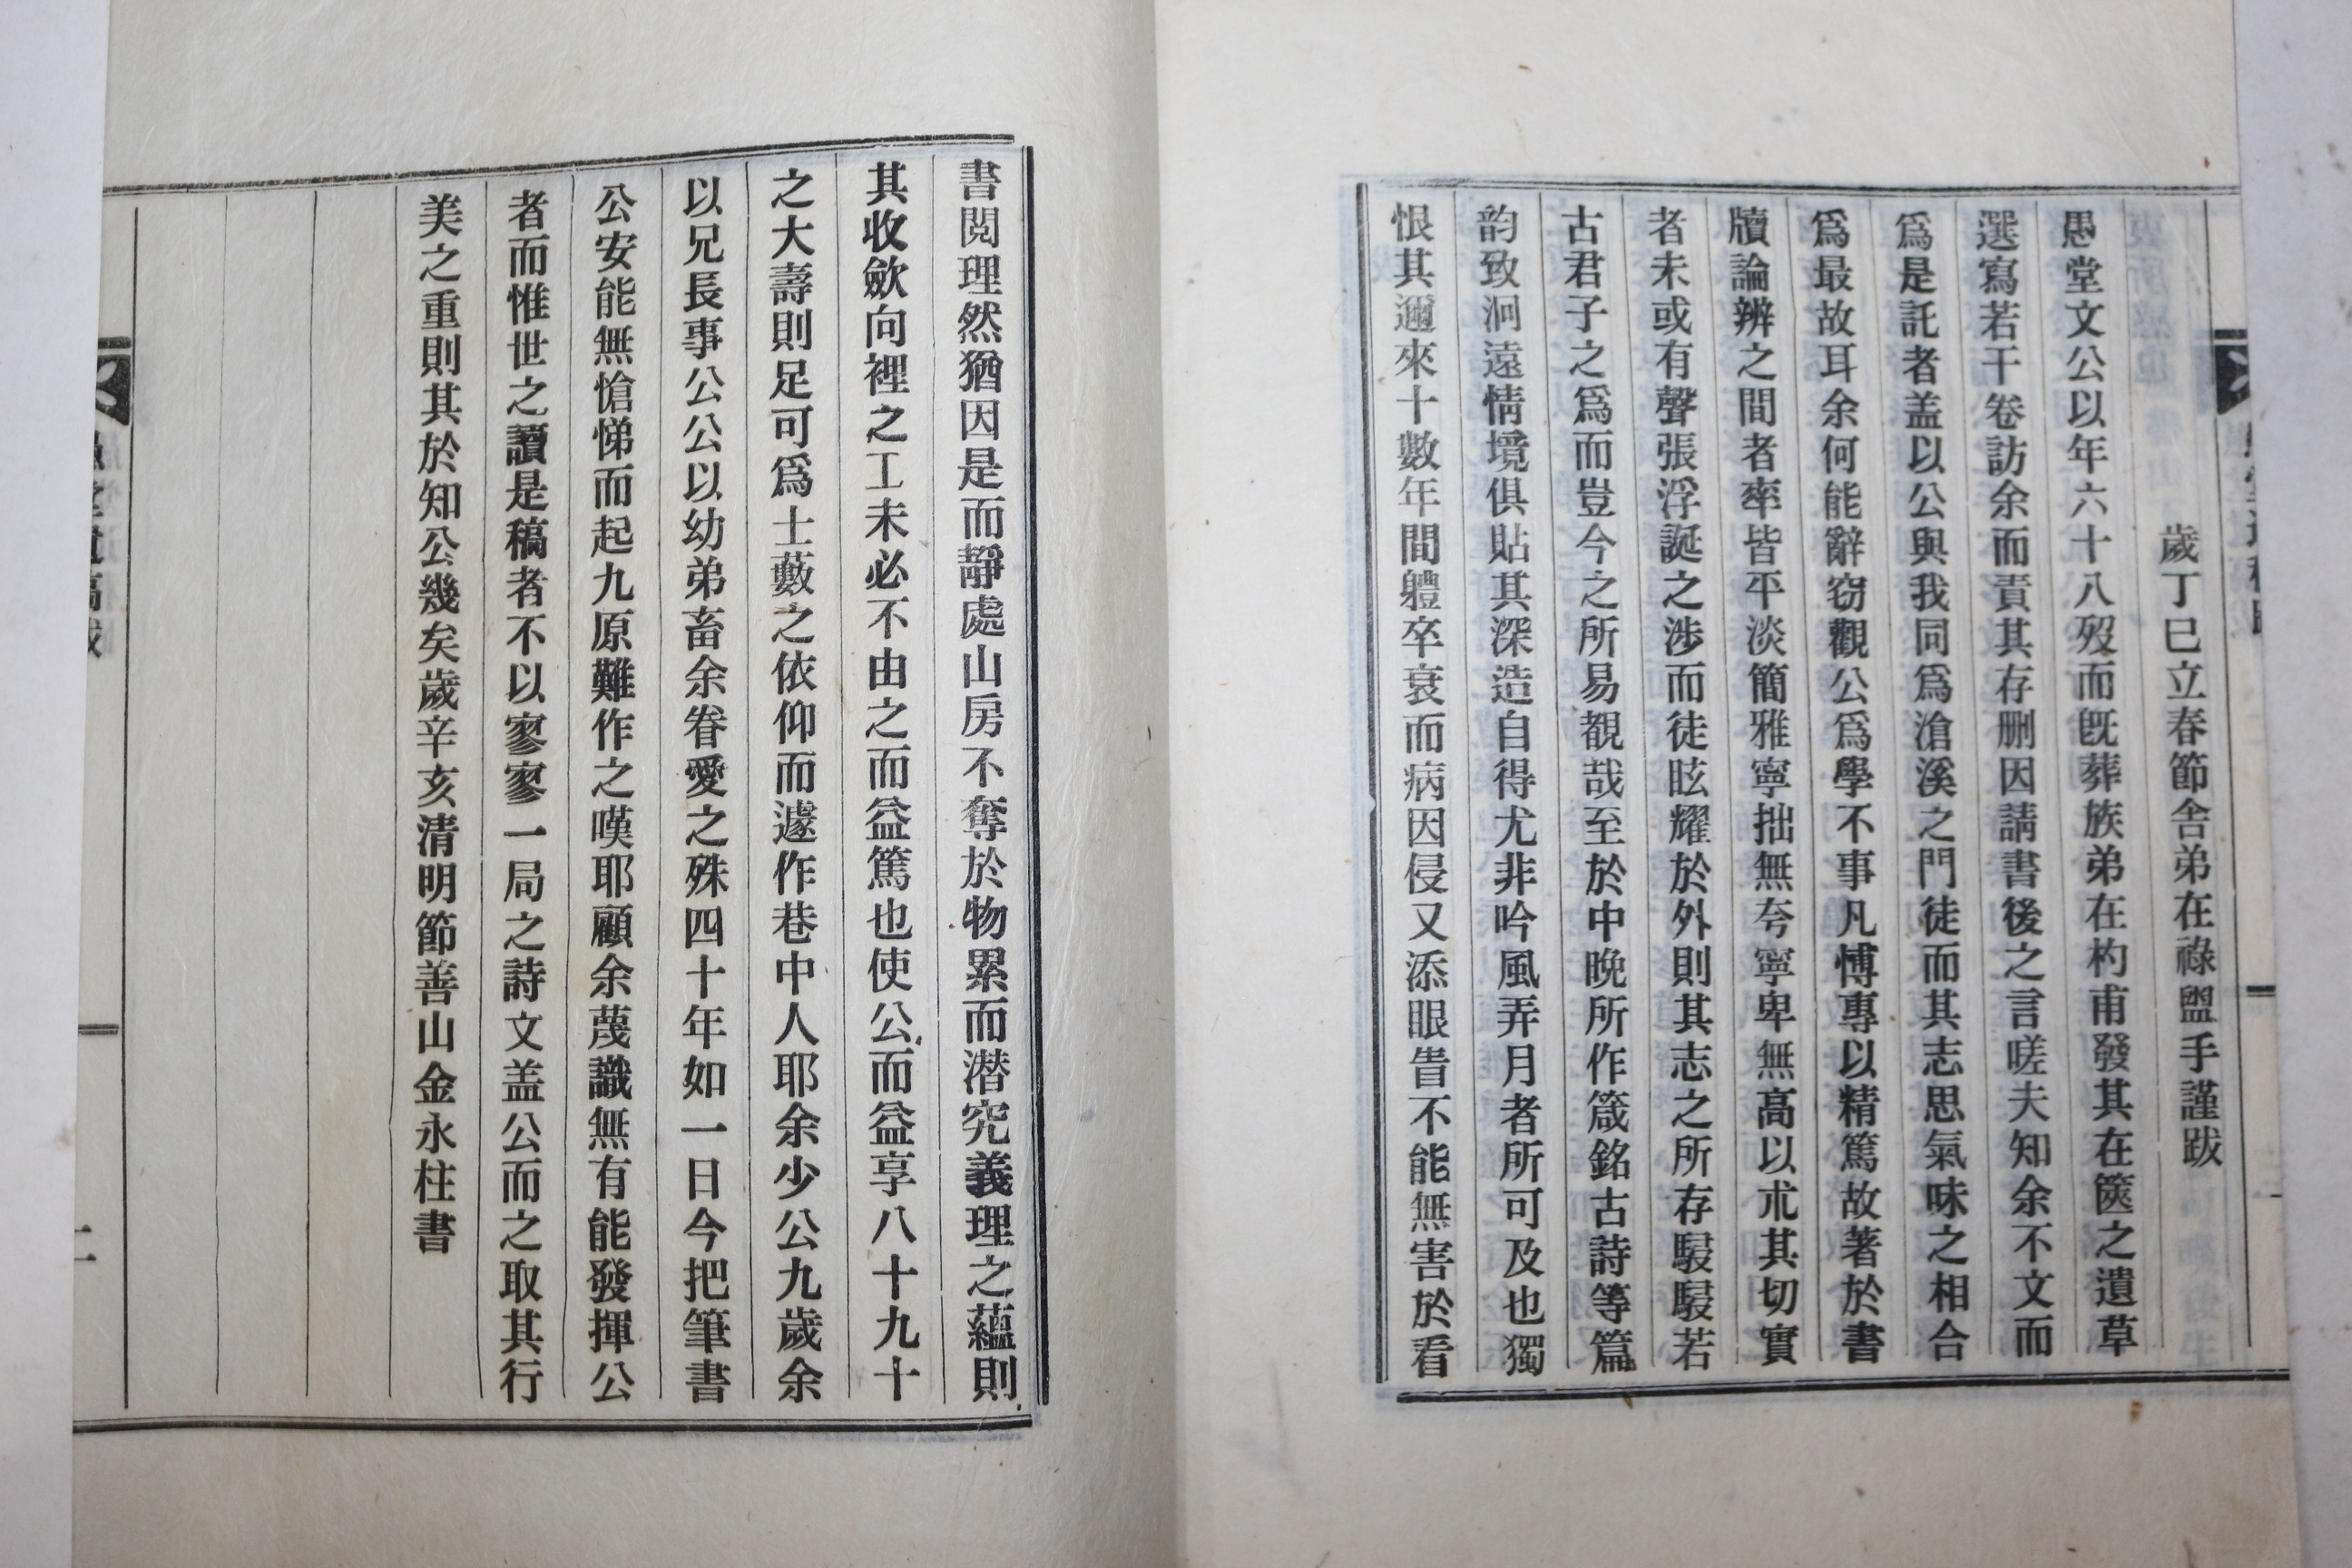 歲丁巳立春節舍弟在祿盥手謹跋
愚堂文公以年六十八歿而旣葬族弟在杓甫發其在篋之遺草
選寫若干卷訪余而責其存删因請書後之言嗟夫知余不文而
爲是託者盖以公與我同爲滄溪之門徒而其志思氣味之相合
爲最故耳余何能辭窃觀公爲學不事凡博專以精篤故著於書
牘論辨之間者率皆平淡簡雅寧拙無夸寧卑無高以朮其切實
者未或有聲張浮誕之涉而徒眩耀於外則其志之所存駸駸若
古君子之爲而豈今之所易覩哉至於中晩所作箴銘古詩等篇
韵致泂遠情境俱貼其深造自得尤非吟風弄月者所可及也獨
恨其邇來十數年間軆卒衰而病因侵又添眼眚不能無害於看
書閱理然猶因是而靜處山房不奪於物累而潜究義理之蘊則
其收歛向裡之工未必不由之而益篤也使公而益享八十九十
之大壽則足可爲士藪之依仰而遽作巷中人耶余少公九歲余
以兄長事公公以幼弟畜余眷愛之殊四十年如一日今把筆書
公安能無愴悌而起九原難作之嘆耶顧余蔑識無有能發揮公
者而惟世之讀是稿者不以寥寥一局之詩文盖公而之取其行
美之重則其於知公幾矣歲辛亥清明節善山金永柱書
二